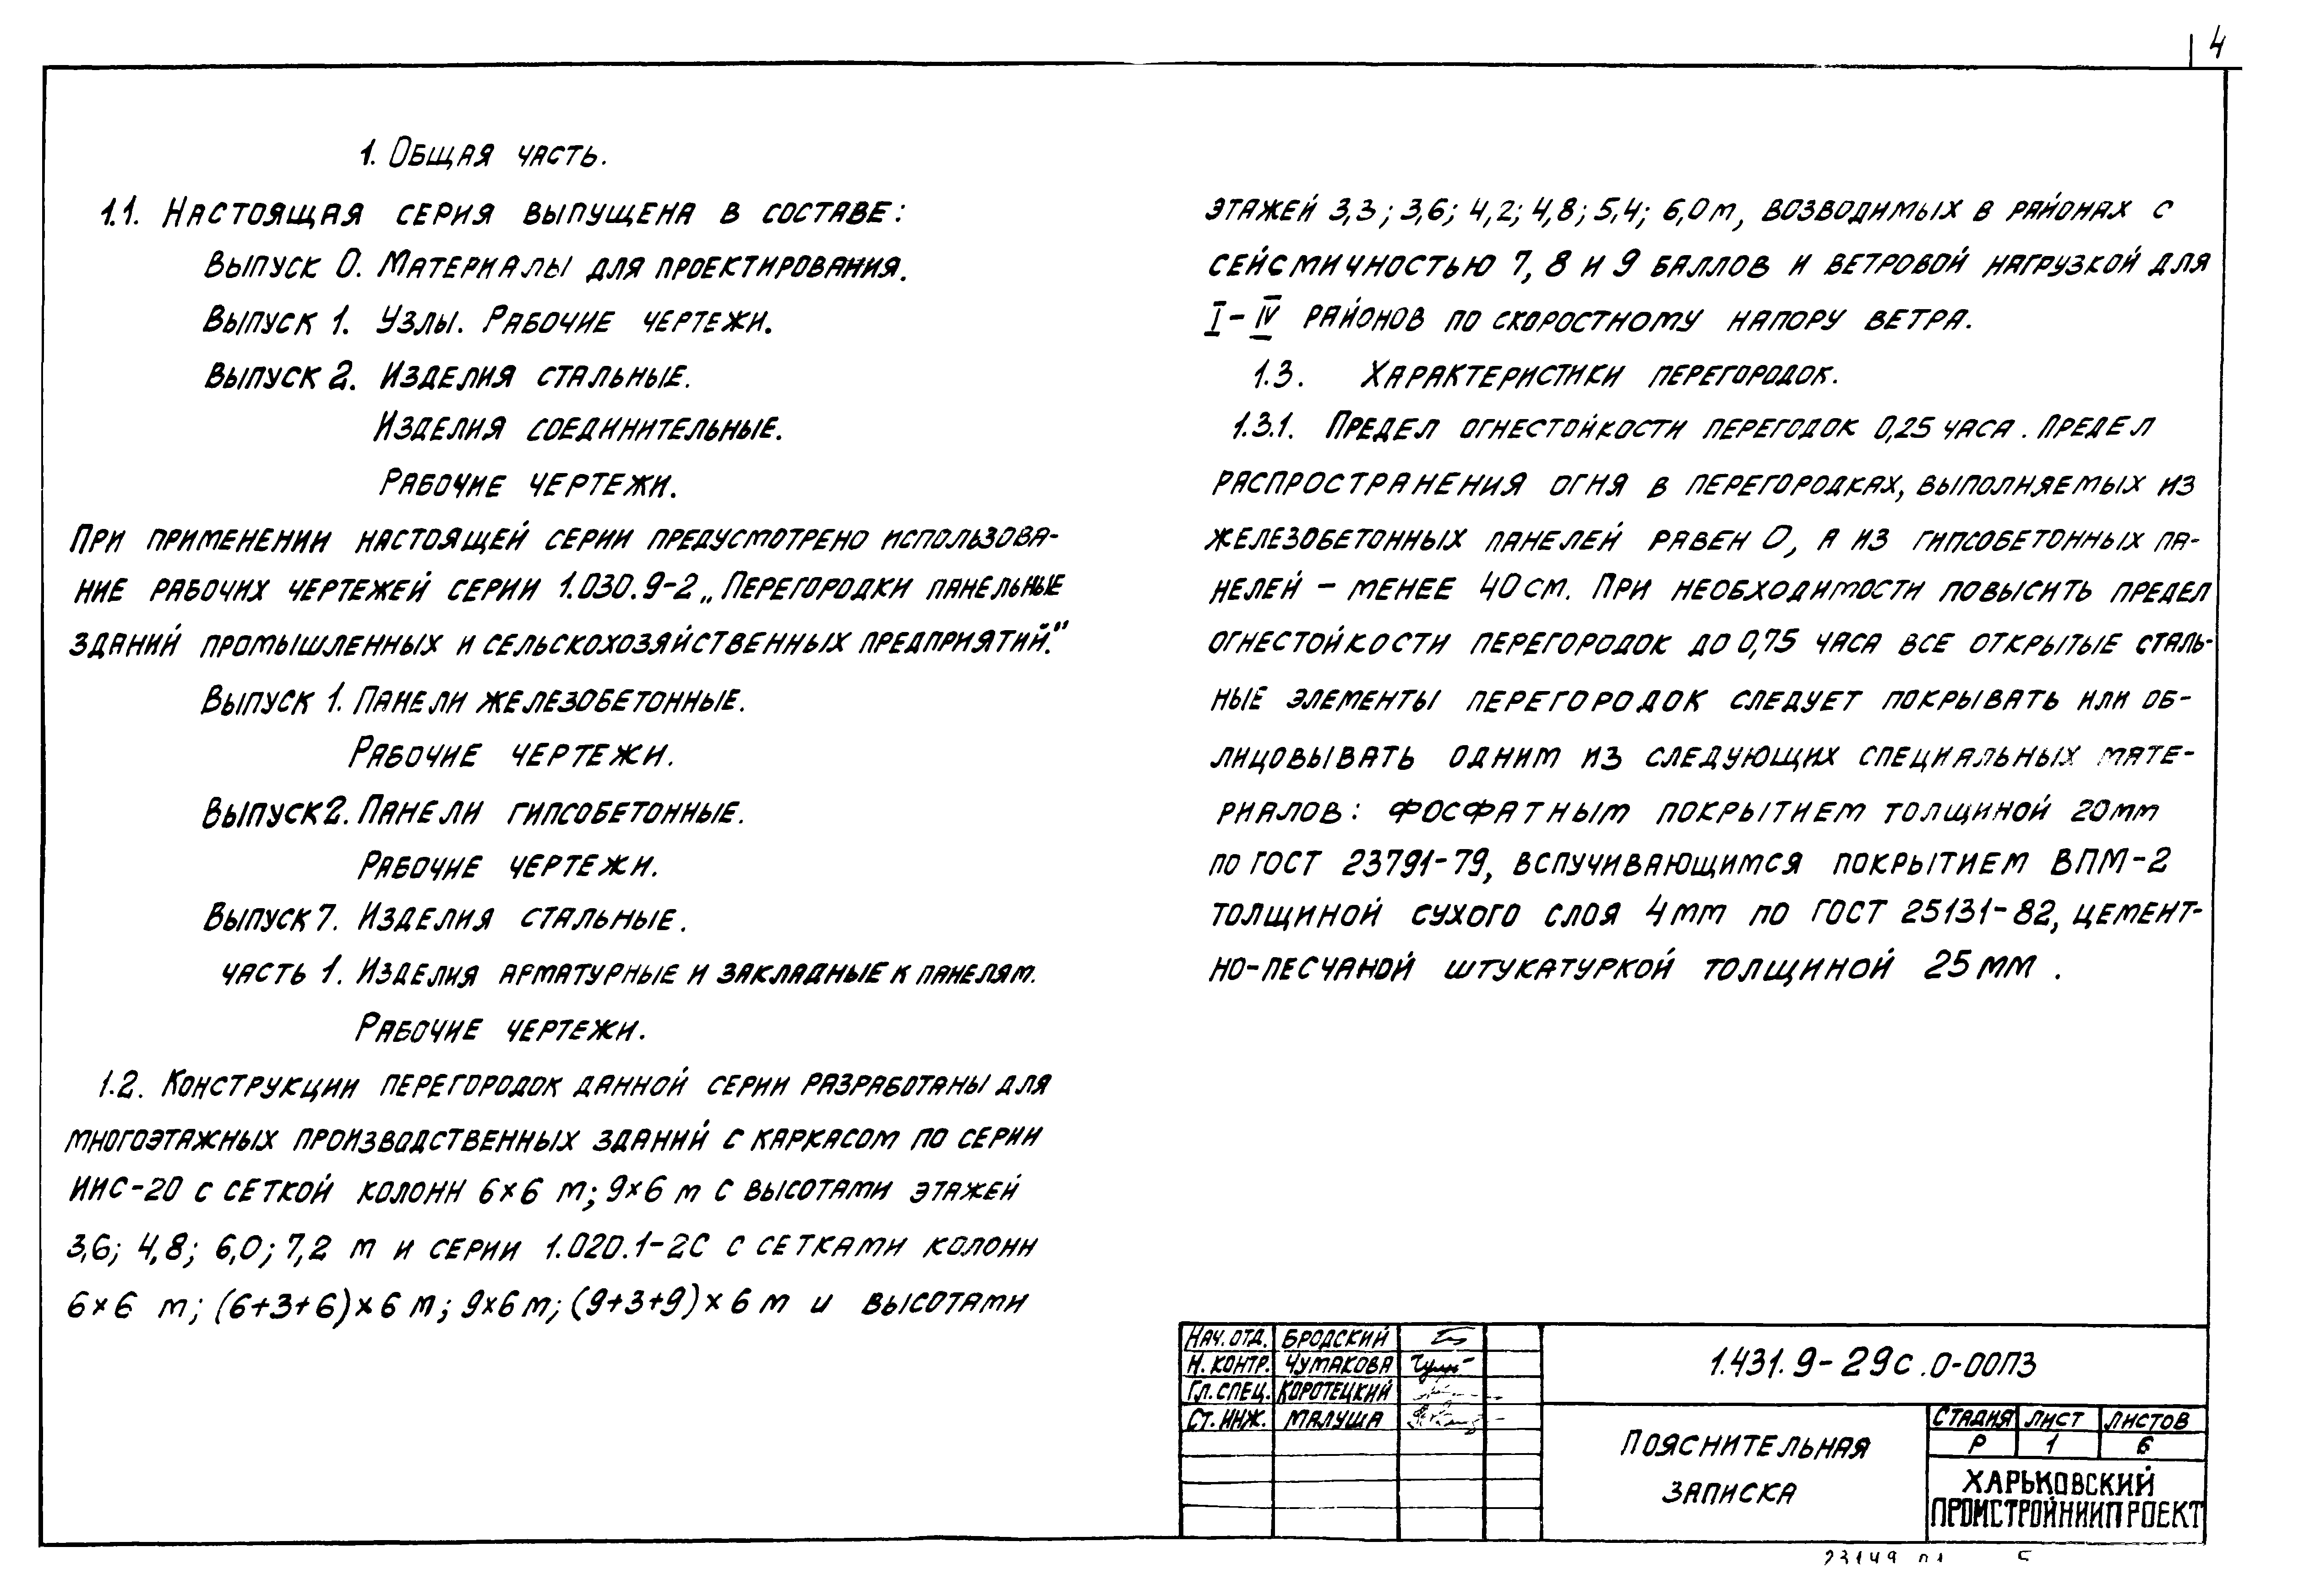 4
1. Общая часть.
1.1. Настоящая серия выпущена в составе:
Выпуск 0. Материалы для проектирования.
Выпуск 1. Узлы. Рабочие чертежи.
Выпуск 2. Изделия стальные.
Изделия соединительные.
Рабочие чертежи.
При применении настоящей серии предусмотрено использова-
ние рабочих чертежей серии 1.030.9-2 „Перегородки панельные
зданий промышленных и сельскохозяйственных предприятий."
Выпуск 1. Панели железобетонные.
Рабочие чертежи.
Выпуск 2. Панели гипсобетонные.
Рабочие чертежи.
Выпуск 7. Изделия стальные.
часть 1. Изделия арматурные и закладные к панелям.
Рабочие чертежи.
1.2. Конструкции перегородок данной серии разработаны для
многоэтажных производственных зданий с каркасом по серии
ИИС-20 с сеткой колонн 6×6 м; 9×6 м с высотами этажей
3,6; 4,8; 6,0; 7,2 м и серии 1.020.1-2С с сетками колонн
6×6 м; (6+3+6)×6 м; 9×6 м; (9+3+9)×6 м и высотами
этажей 3,3; 3,6; 4,2; 4,8; 5,4; 6,0 м, возводимых в районах с
сейсмичностью 7, 8 и 9 баллов и ветровой нагрузкой для
I-IV районов по скоростному напору ветра.
1.3. Характеристики перегородок.
1.3.1. Предел огнестойкости перегодок 0,25 часа. Предел
распространения огня в перегородках, выполняемых из
железобетонных панелей равен 0, а из гипсобетонных па-
нелей – менее 40 см. При необходимости повысить предел
огнестойкости перегородок до 0,75 часа все открытые сталь-
ные элементы перегородок следует покрывать или об-
лицовывать одним из следующих специальных мате-
риалов: фосфатным покрытием толщиной 20 мм
по ГОСТ 23791-79, вспучивающимся покрытием ВПМ-2
толщиной сухого слоя 4 мм по ГОСТ 25131-82, цемент-
но-песчаной штукатуркой толщиной 25 мм.
Нач. отд. Бродский
Н. контр. Чумакова
Гл. спец. Коротецкий
Ст. инж. Малуша
1.431.9-29с.0-00ПЗ
Пояснительная
записка
Стадия Лист Листов
Р 1 6
Харьковский
Промстройниипроект
23149 5